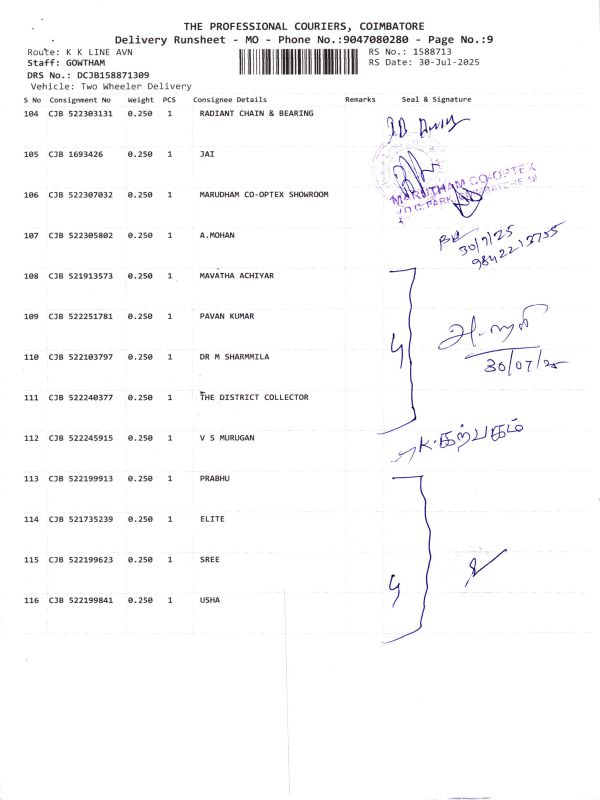 THE PROFESSIONAL COURIERS, COIMBATORE
Delivery Runsheet - MO - Phone No.:9047080280 - Page No.:9
Route: K K LINE AVN RS No.: 1588713
Staff: GOWTHAM RS Date: 30-Jul-2025
DRS No.: DCJB158871309
Vehicle: Two Wheeler Delivery
S No Consignment No Weight PCS Consignee Details Remarks Seal & Signature
104 CJB 522303131 0.250 1 RADIANT CHAIN & BEARING
105 CJB 1693426 0.250 1 JAI
MARUTHAM CO-OPTEX
106 CJB 522307032 0.250 1 MARUDHAM CO-OPTEX SHOWROOM
V.O.C. PARK
107 CJB 522305802 0.250 1 A.MOHAN
30/7/25
9842213755
108 CJB 521913573 0.250 1 MAVATHA ACHIYAR
109 CJB 522251781 0.250 1 PAVAN KUMAR
110 CJB 522103797 0.250 1 DR M SHARMMILA
4
30/07/25
111 CJB 522240377 0.250 1 THE DISTRICT COLLECTOR
112 CJB 522245915 0.250 1 V S MURUGAN
K.கற்பகம்
113 CJB 522199913 0.250 1 PRABHU
114 CJB 521735239 0.250 1 ELITE
115 CJB 522199623 0.250 1 SREE
4
116 CJB 522199841 0.250 1 USHA